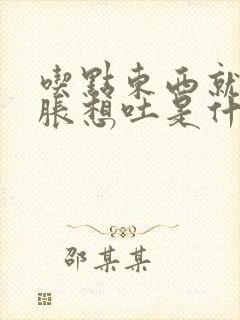 喫點東西就
脹想吐是什
邵某某